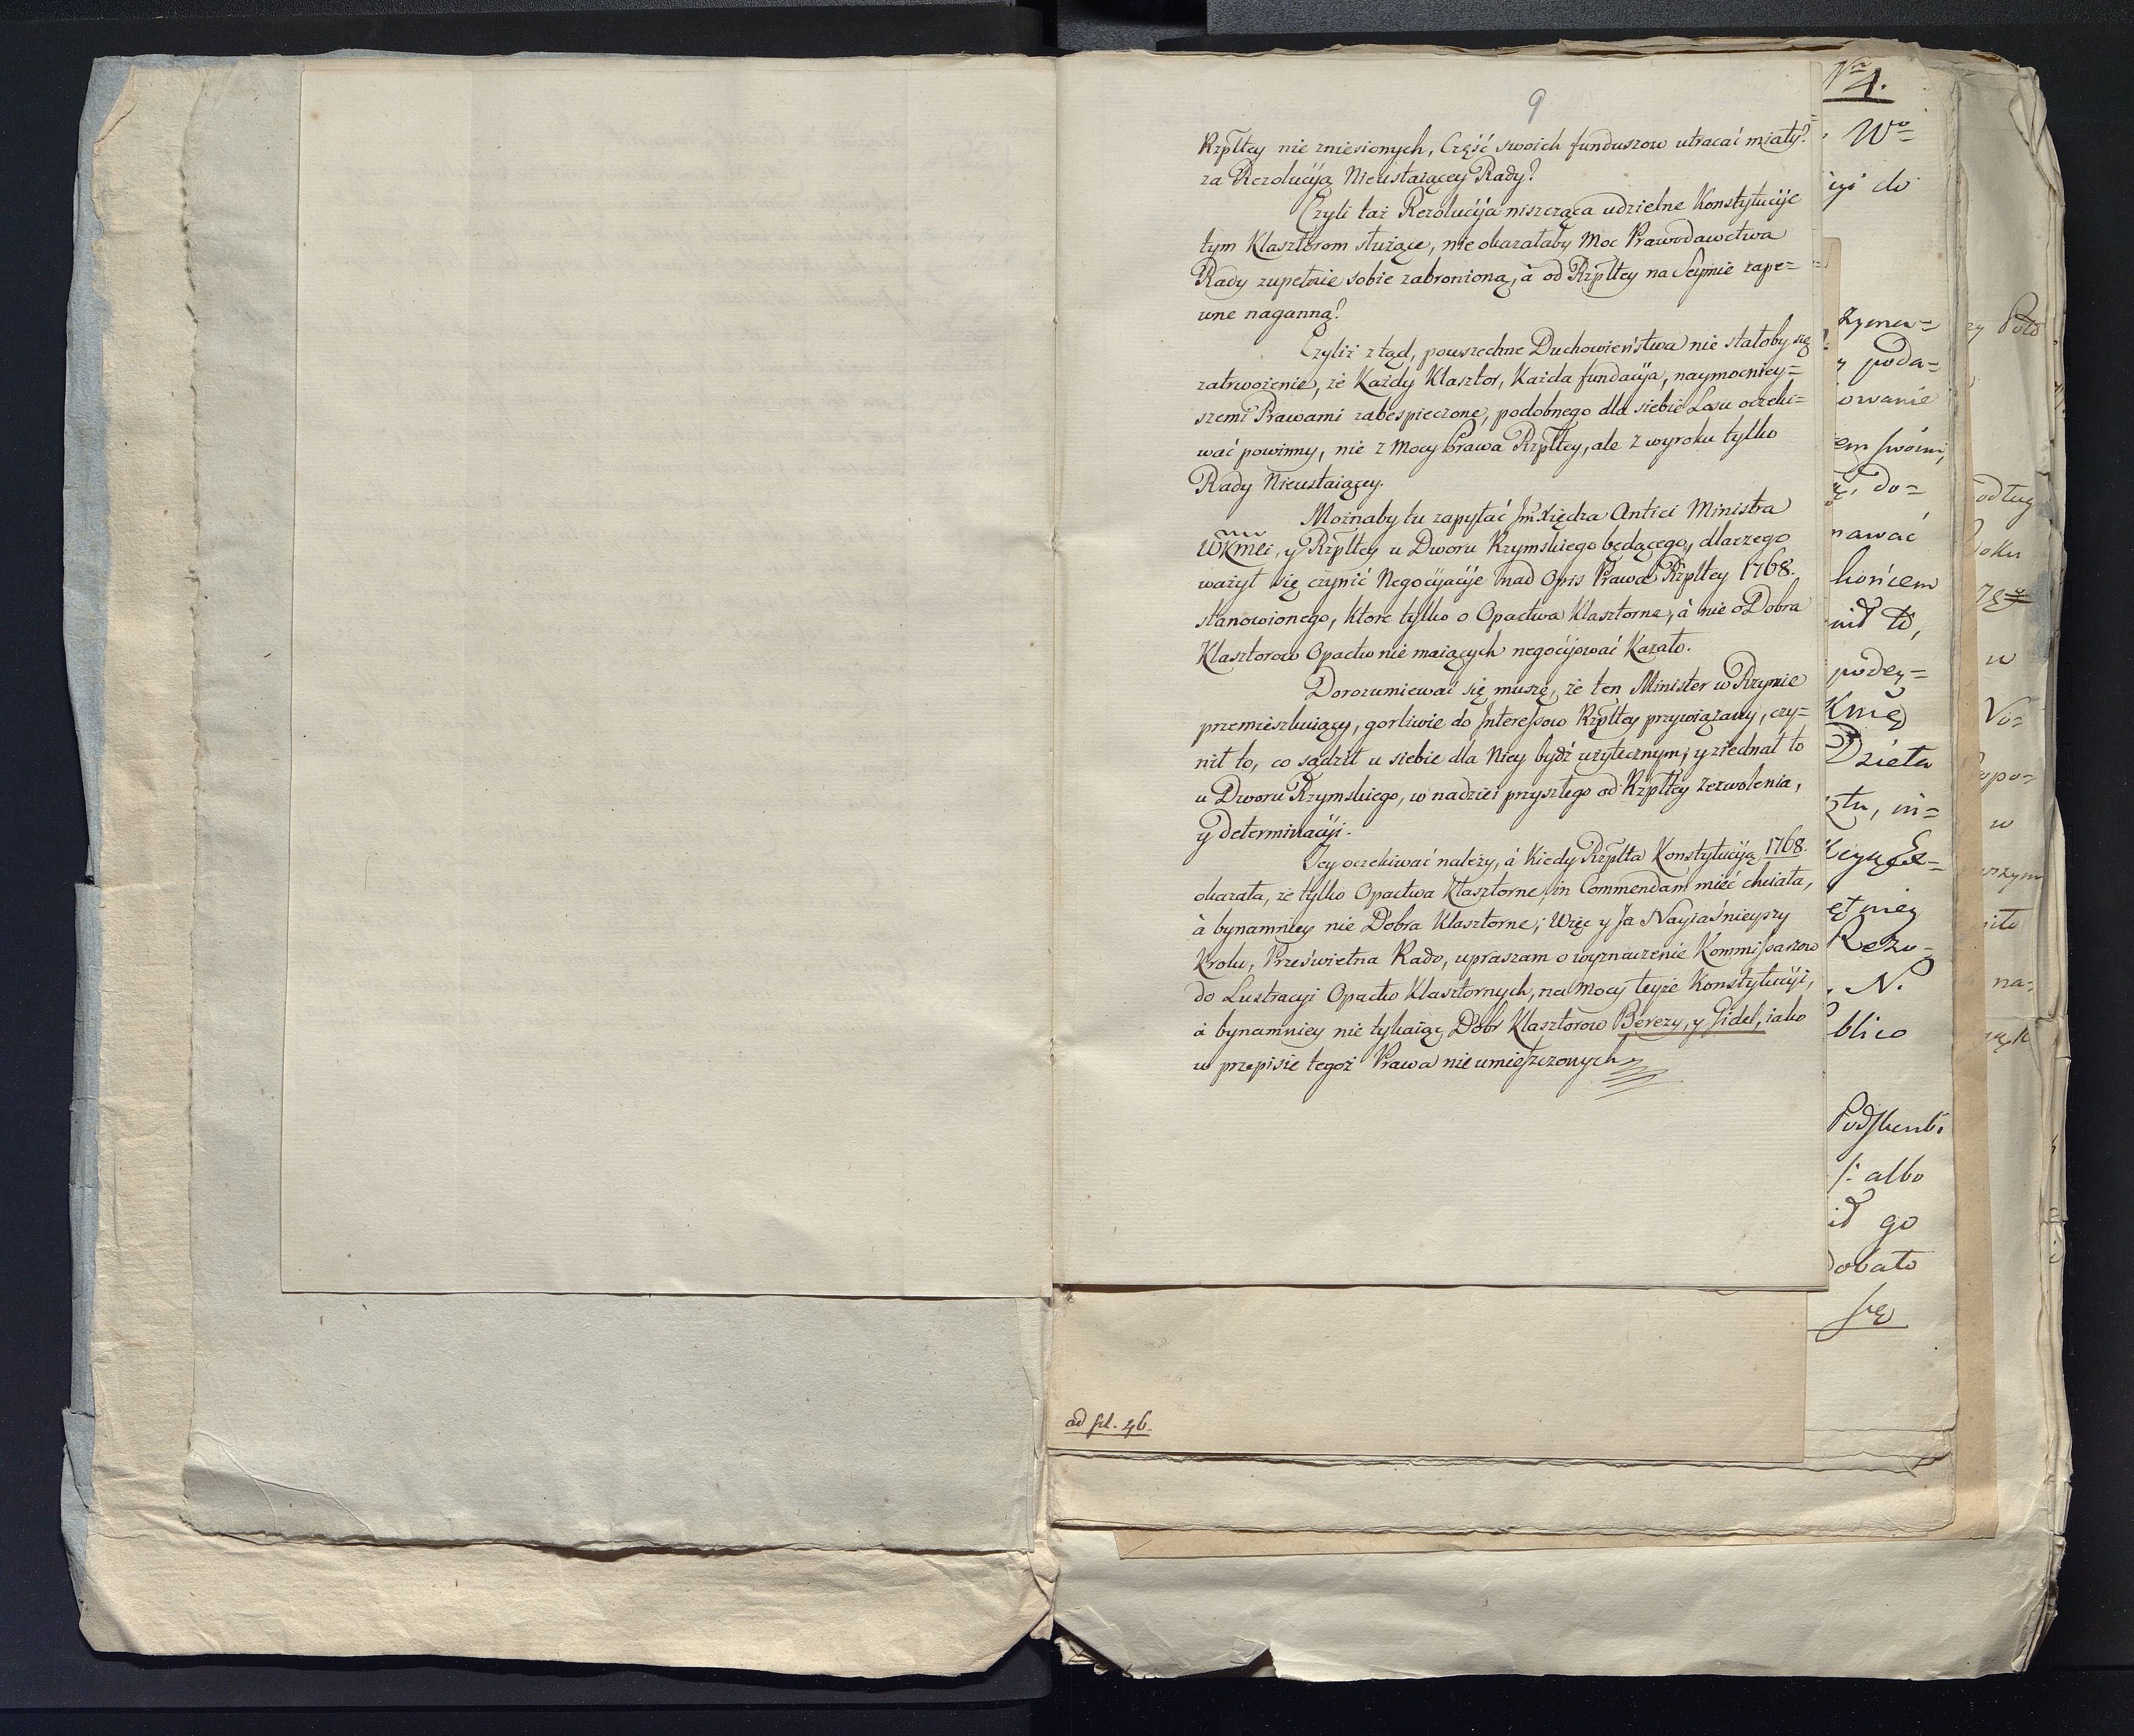 9
Rzpltey nie zniesionych, Część swoich funduszow utracać miały?
za Rezolucyą Nieustaiącey Rady?
Czyli taż Rezolucyja niszcząca udzielne Konstytucije
tym Klasztorom służące, nie okazałaby Moc Prawodawctwa
Rady zupełnie sobie zabronioną, à od Rzpltey na Seymie zape=
wne naganną?
Czyliż ztąd, powszechne Duchowieństwa nie stałoby się
zatrwożenie, że Każdy Klasztor, Każda fundacyja, naymocniey=
szemi Prawami zabespieczone, podobnego dla siebie Losu oczeki=
wać powinny, nie z Mocy Prawa Rzpltey, ale z wyroku tylko
Rady Nieustaiącey.
Możnaby tu zapytać Jm Xiędza Antici Ministra
WKMci, y Rzpltey u Dworu Rzymskiego będącego, dlaczego
ważył się czynić Negocyjacyje nad Opis Prawa Rzpltey 1768.
stanowionego, Ktore tylko o Opactwa Klasztorne, à nie o Dobra
Klasztorow Opactw nie maiących negocyjować Kazało.
Dorozumiewać się muszę, że ten Minister w Rzymie
przemieszkuiący, gorliwie do Interessow Rzpltey przywiązany, czy=
nił to, co sądził u siebie dla Niey bydź użytecznym; y ziednał to
u Dworu Rzymskiego, w nadziei przyszłego od Rzpltey zezwolenia,
y determinacyi.
Jey oczekiwać należy, á Kiedy Rzplta Konstytucyją 1768.
okazała, że tylko Opactwa Klasztorne, in Commendam mieć chciała,
à bynamniey nie Dobra Klasztorne; Więc y Ja Nayiaśnieyszy
Krolu, Prześwietna Rado, upraszam o wyznaczenie Kommissarzow
do Lustracyi Opactw Klasztornych, na Mocy teyże Konstytucyi,
á bynamniey nie tykaiąc Dobr Klasztorow Berezy, y Gidel, iako
w przepisie tegoż Prawa nie umieszczonych
ad fol. 46.
Nro 4.
Wo
cyi do
poda=
owanie
em swoim,
do=
nawać
końcem
podey=
Dzieła
in=
N.
blico
albo
go
się
w
Vo=
w
na=